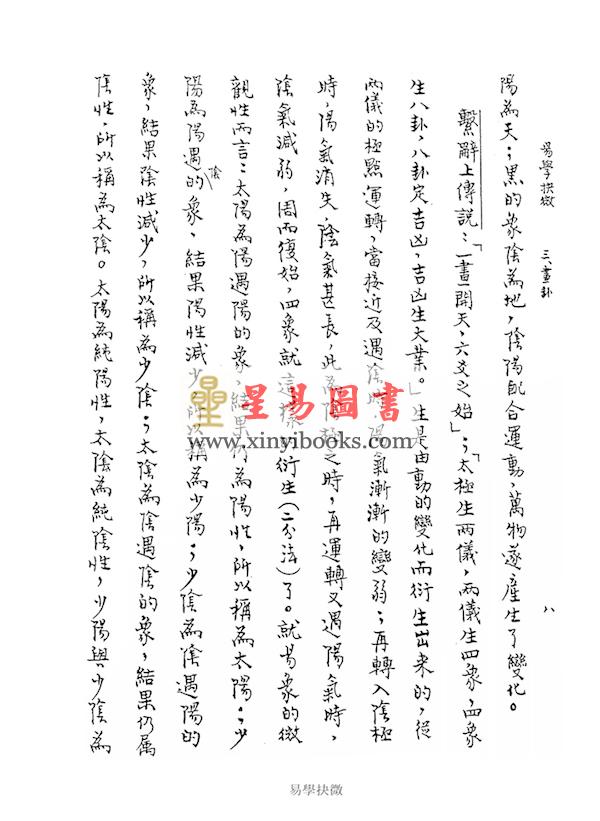 易學抉微　三、畫卦　八
陽為天；黑的象陰為地，陰陽配合運動，萬物遂產生了變化。
繫辭上傳說：「一畫開天，六爻之始」；「太極生兩儀，兩儀生四象，四象
生八卦，八卦定吉凶，吉凶生大業。」生是由動的變化而衍生出來的，從
兩儀的極點運轉，當接近及遇陰 陽氣漸漸的變弱；再轉入陰極
時，陽氣消失，陰氣甚長，此為陰極之時，再運轉又遇陽氣時，
陰氣減弱，周而復始，四象就這樣的衍生（二分法）了。就易象的微
觀性而言：太陽為陽遇陽的象，結果仍為陽性，所以稱為太陽；少
陽為陽遇陰的象，結果陽性減少，所以稱為少陽；少陰為陰遇陽的
象，結果陰性減少，所以稱為少陰；太陰為陰遇陰的象，結果仍屬
陰性，所以稱為太陰。太陽為純陽性，太陰為純陰性，少陽與少陰為
星易圖書
www.xinyibooks.com
易學抉微